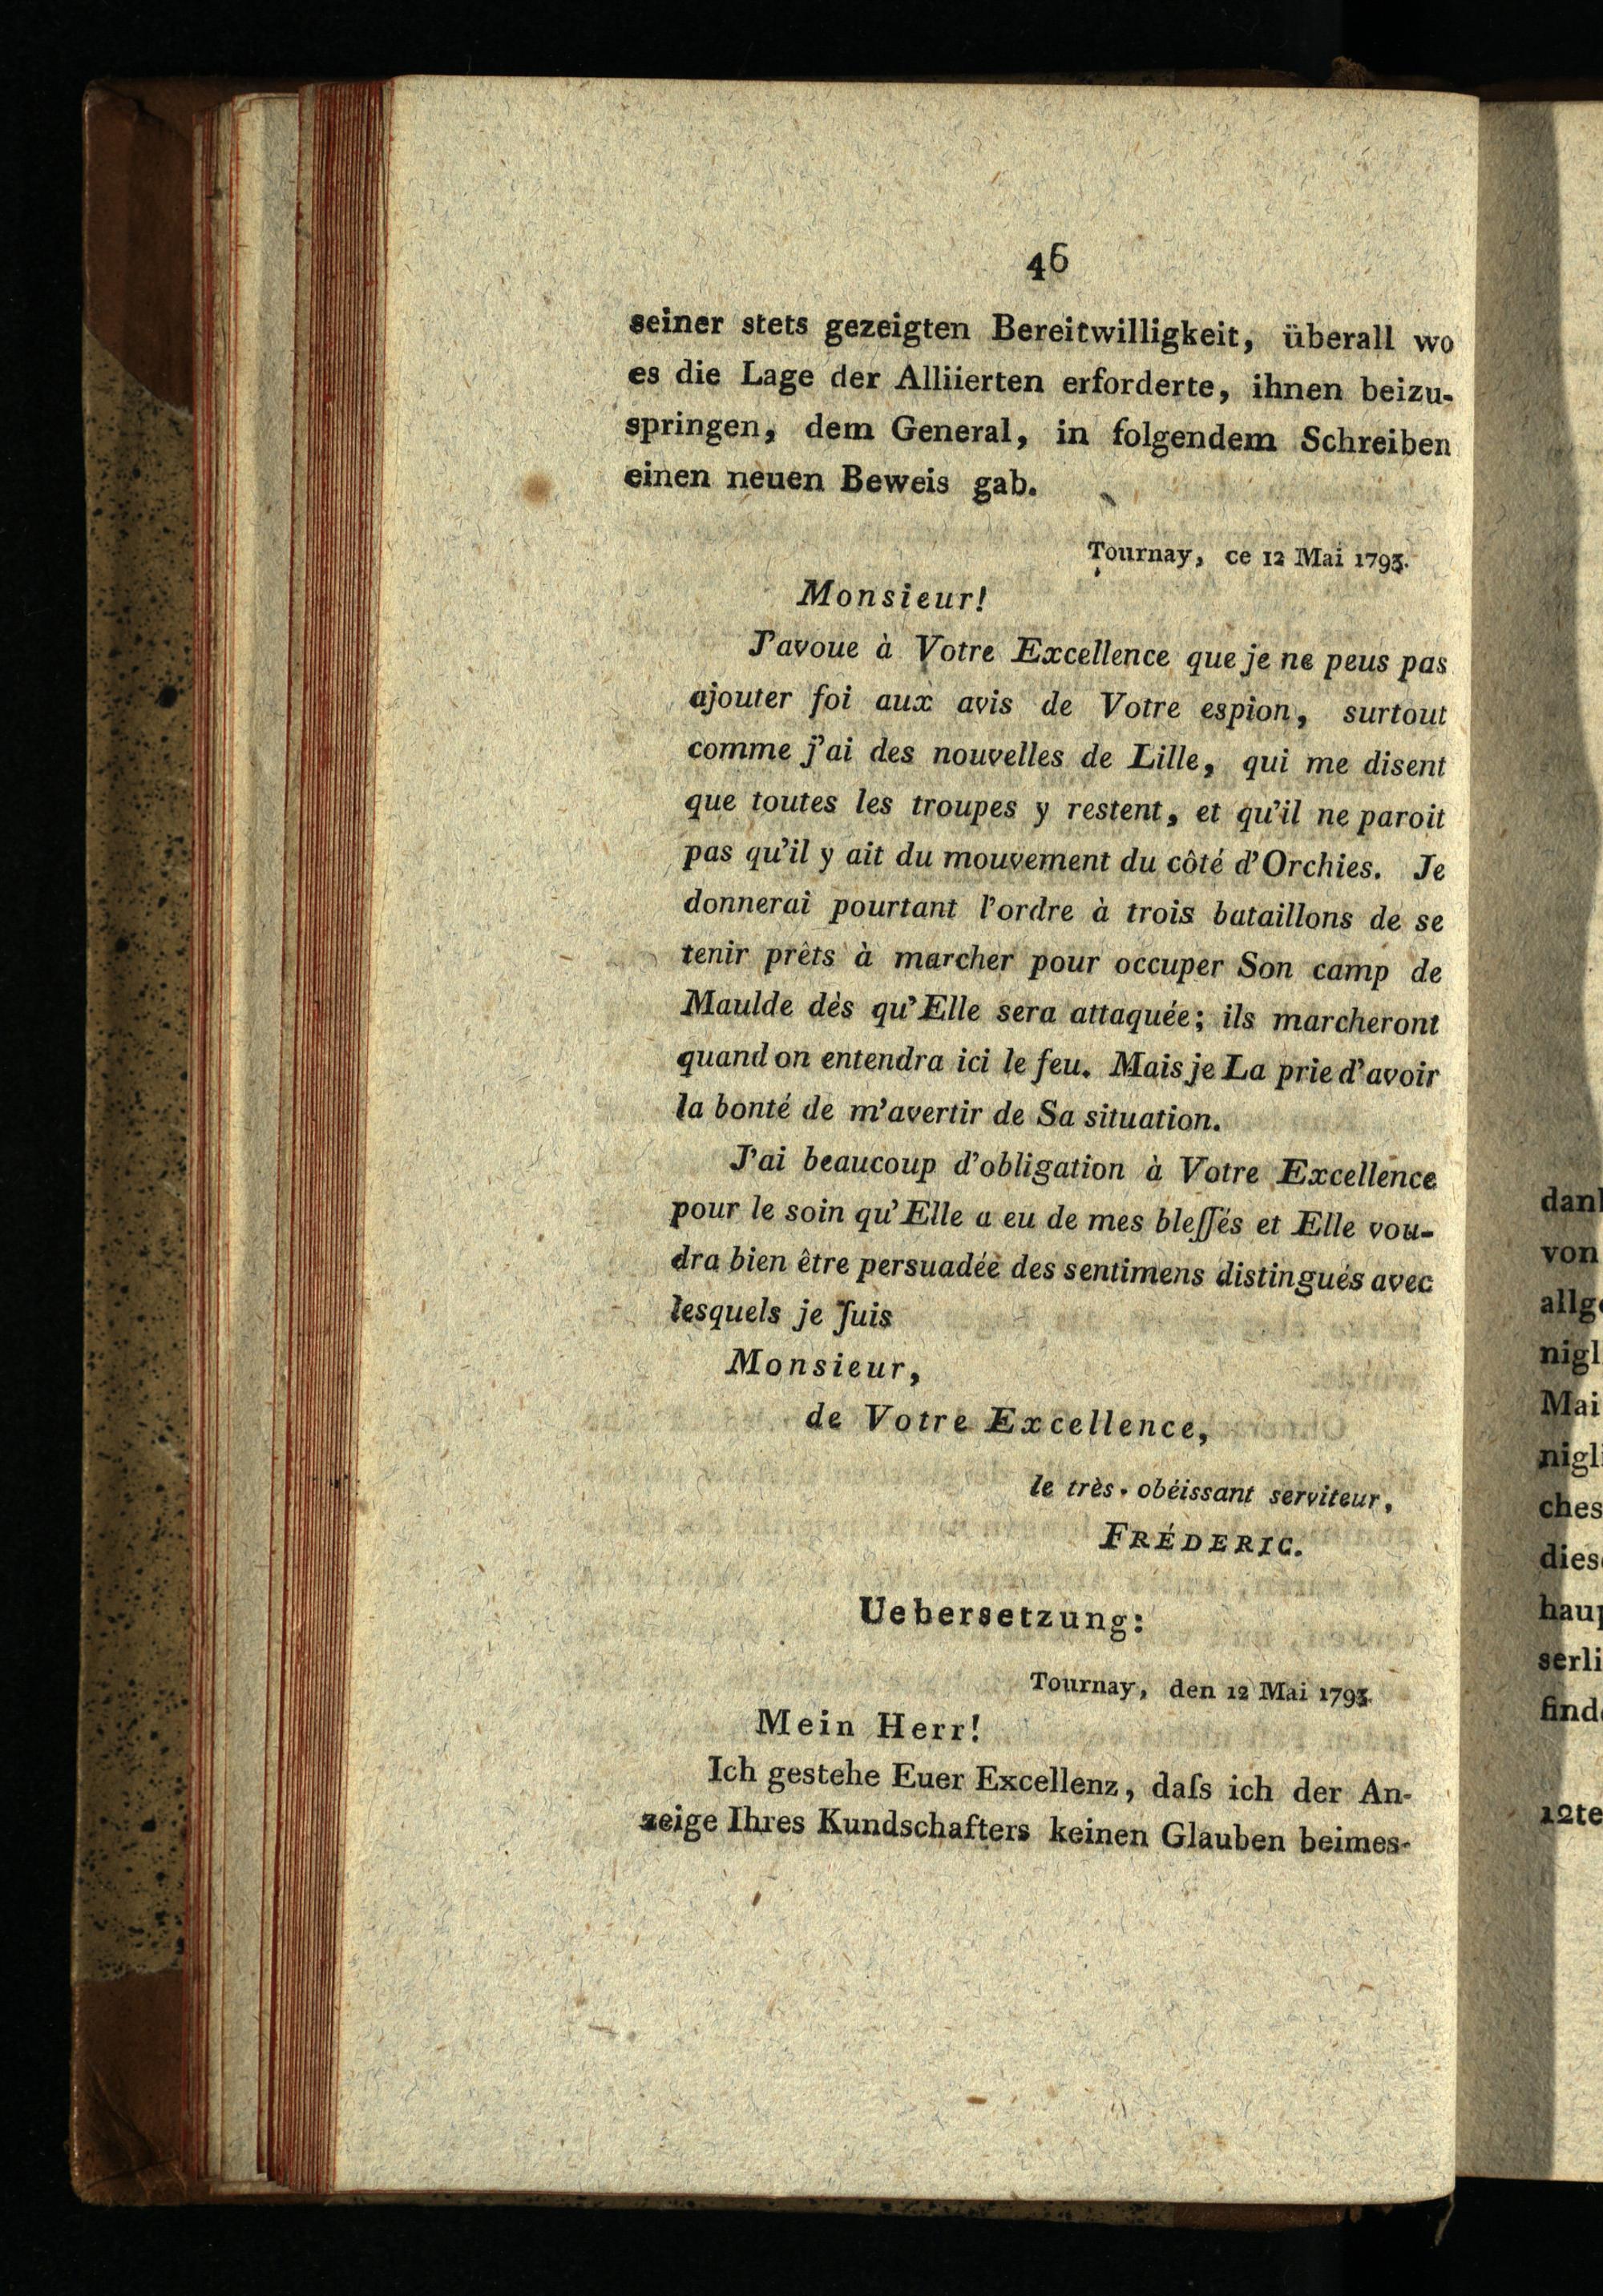 46
seiner stets gezeigten Bereitwilligkeit, überall wo
es die Lage der Alliierten erforderte, ihnen beizu-
springen, dem General, in folgendem Schreiben
einen neuen Beweis gab.
Tournay, ce 12 Mai 1793.
Monsieur!
J'avoue à Votre Excellence que je ne peus pas
ajouter foi aux avis de Votre espion, surtout
comme j'ai des nouvelles de Lille, qui me disent
que toutes les troupes y restent, et qu'il ne paroit
pas qu'il y ait du mouvement du côté d'Orchies. Je
donnerai pourtant l'ordre à trois bataillons de se
tenir prêts à marcher pour occuper Son camp de
Maulde dès qu'Elle sera attaquée; ils marcheront
quand on entendra ici le feu. Mais je La prie d'avoir
la bonté de m'avertir de Sa situation.
J'ai beaucoup d'obligation à Votre Excellence
pour le soin qu'Elle a eu de mes bleſſés et Elle vou-
dra bien être persuadée des sentimens distingués avec
lesquels je ſuis
Monsieur,
de Votre Excellence,
le très-obéissant serviteur,
FRÉDERIC.
Uebersetzung:
Tournay, den 12 Mai 1793.
Mein Herr!
Ich gestehe Euer Excellenz, daſs ich der An-
zeige Ihres Kundschafters keinen Glauben beimes-
von
allg
nigl
Mai
nigl
ches
dies
hau
serli
find
12te